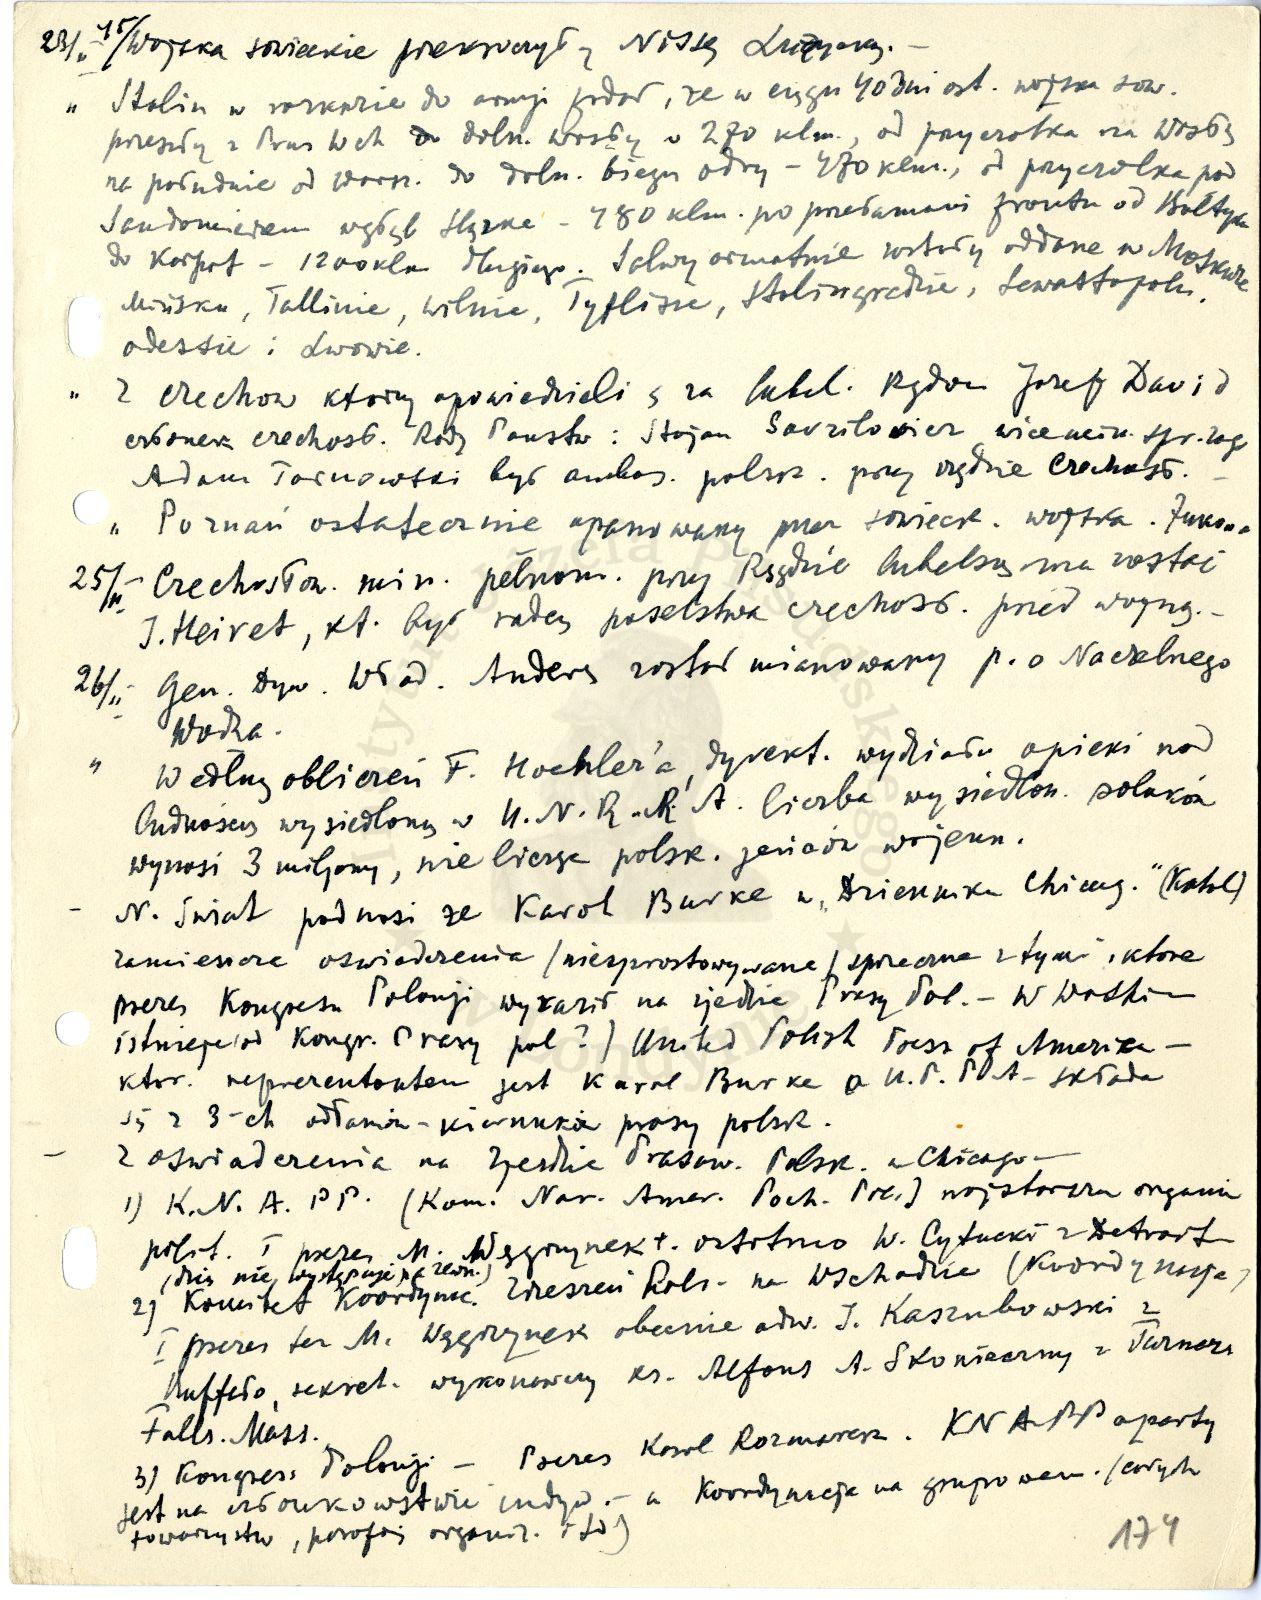 23/II 45/ Wojska sowieckie przekroczyły Nissę Łużycką. –
" Stalin w rozkazie do armji podał, że w ciągu 40 dni ost. wojska sow.
przeszły z Prus Wsch do doln. Wisły o 270 klm., od przyczółka na Wisłą
na południe od Warsz. do doln. biegu Odry – 570 klm., od przyczółka pod
Sandomierzem wgłąb Śląska – 480 klm. po przełamani frontu od Bałtyku
do Karpat – 1200 klm długiego. Salwy armatnie zostały oddane w Moskwie
Mińsku, Tallinie, Wilnie, Tyflisie, Stalingradzie, Sewastopolu,
Odessie i Lwowie.
" Z Czechow ktorzy opowiedzieli ś za lubel. Rządem Josef David
członek czechosł. Rady Państw: Stojan wicemin. spr. zagr
Adam Tarnowski był ambas. polsk. przy rządzie Czechosł. –
" Poznań ostatecznie opanowany przez sowieck. wojska. Żukowa
25/II – Czechosłow. min. pełnom. przy Rządzie lubelsk ma zostać
J. Heiret, kt. był radcą poselstwa czechosł. przed wojną. –
26/II – Gen. Dyw. Wład. Anders został mianowany p. o Naczelnego
Wodza.
" Według obliczeń F. Hoehler'a, dyrekt. wydziału opieki nad
ludnością wysiedloną w U.N.R.R.A. liczba wysiedlon. polaków
wynosi 3 miljony, nie licząc polsk. jeńców wojenn.
– N. Świat podnosi że Karol Burke w „Dzienniku Chicag." (Katol)
zamieszcza oświadczenia /niesprostowywane/ sprzeczne z tymi, ktore
prezes Kongresu Polonji wyraził na zjeździe Prasy Pol. – W
istnieje Kongr. Prasy pol?) United Polish Press of America –
ktor. reprezentantem jest Karol Burke a U.P. P A – składa
się z 3-ch odłamów – kierunków prasy polsk.
– Z oświadczenia na Zjeździe Prasow. Polsk. w Chicago –
1) K.N.A.P.P. (Kom. Nar. Amer. Poch. Pol.) najstarsza organiz
polit. I prezes M. Węgrzynek †. ostatnio W. Cytacki z Detroit –
(dziś nie występuje na zewn.)
2) Komitet Koordynac. Zrzeszeń Pols – na Wschodzie (Koordynacja)
I prezes też M. Węgrzynek obecnie adw. J. Kaszubowski z
Buffalo, sekret. wykonawczy ks. Alfons A. Skonieczny z Turners
Falls. Mass.
3) Kongress Polonji – Prezes Karol Rozmarek. KNAPP oparty
jest na członkowstwie indyw. – a Koordynacja na grupowem. (całych
towarzystw, parafij organiz. itd)
174